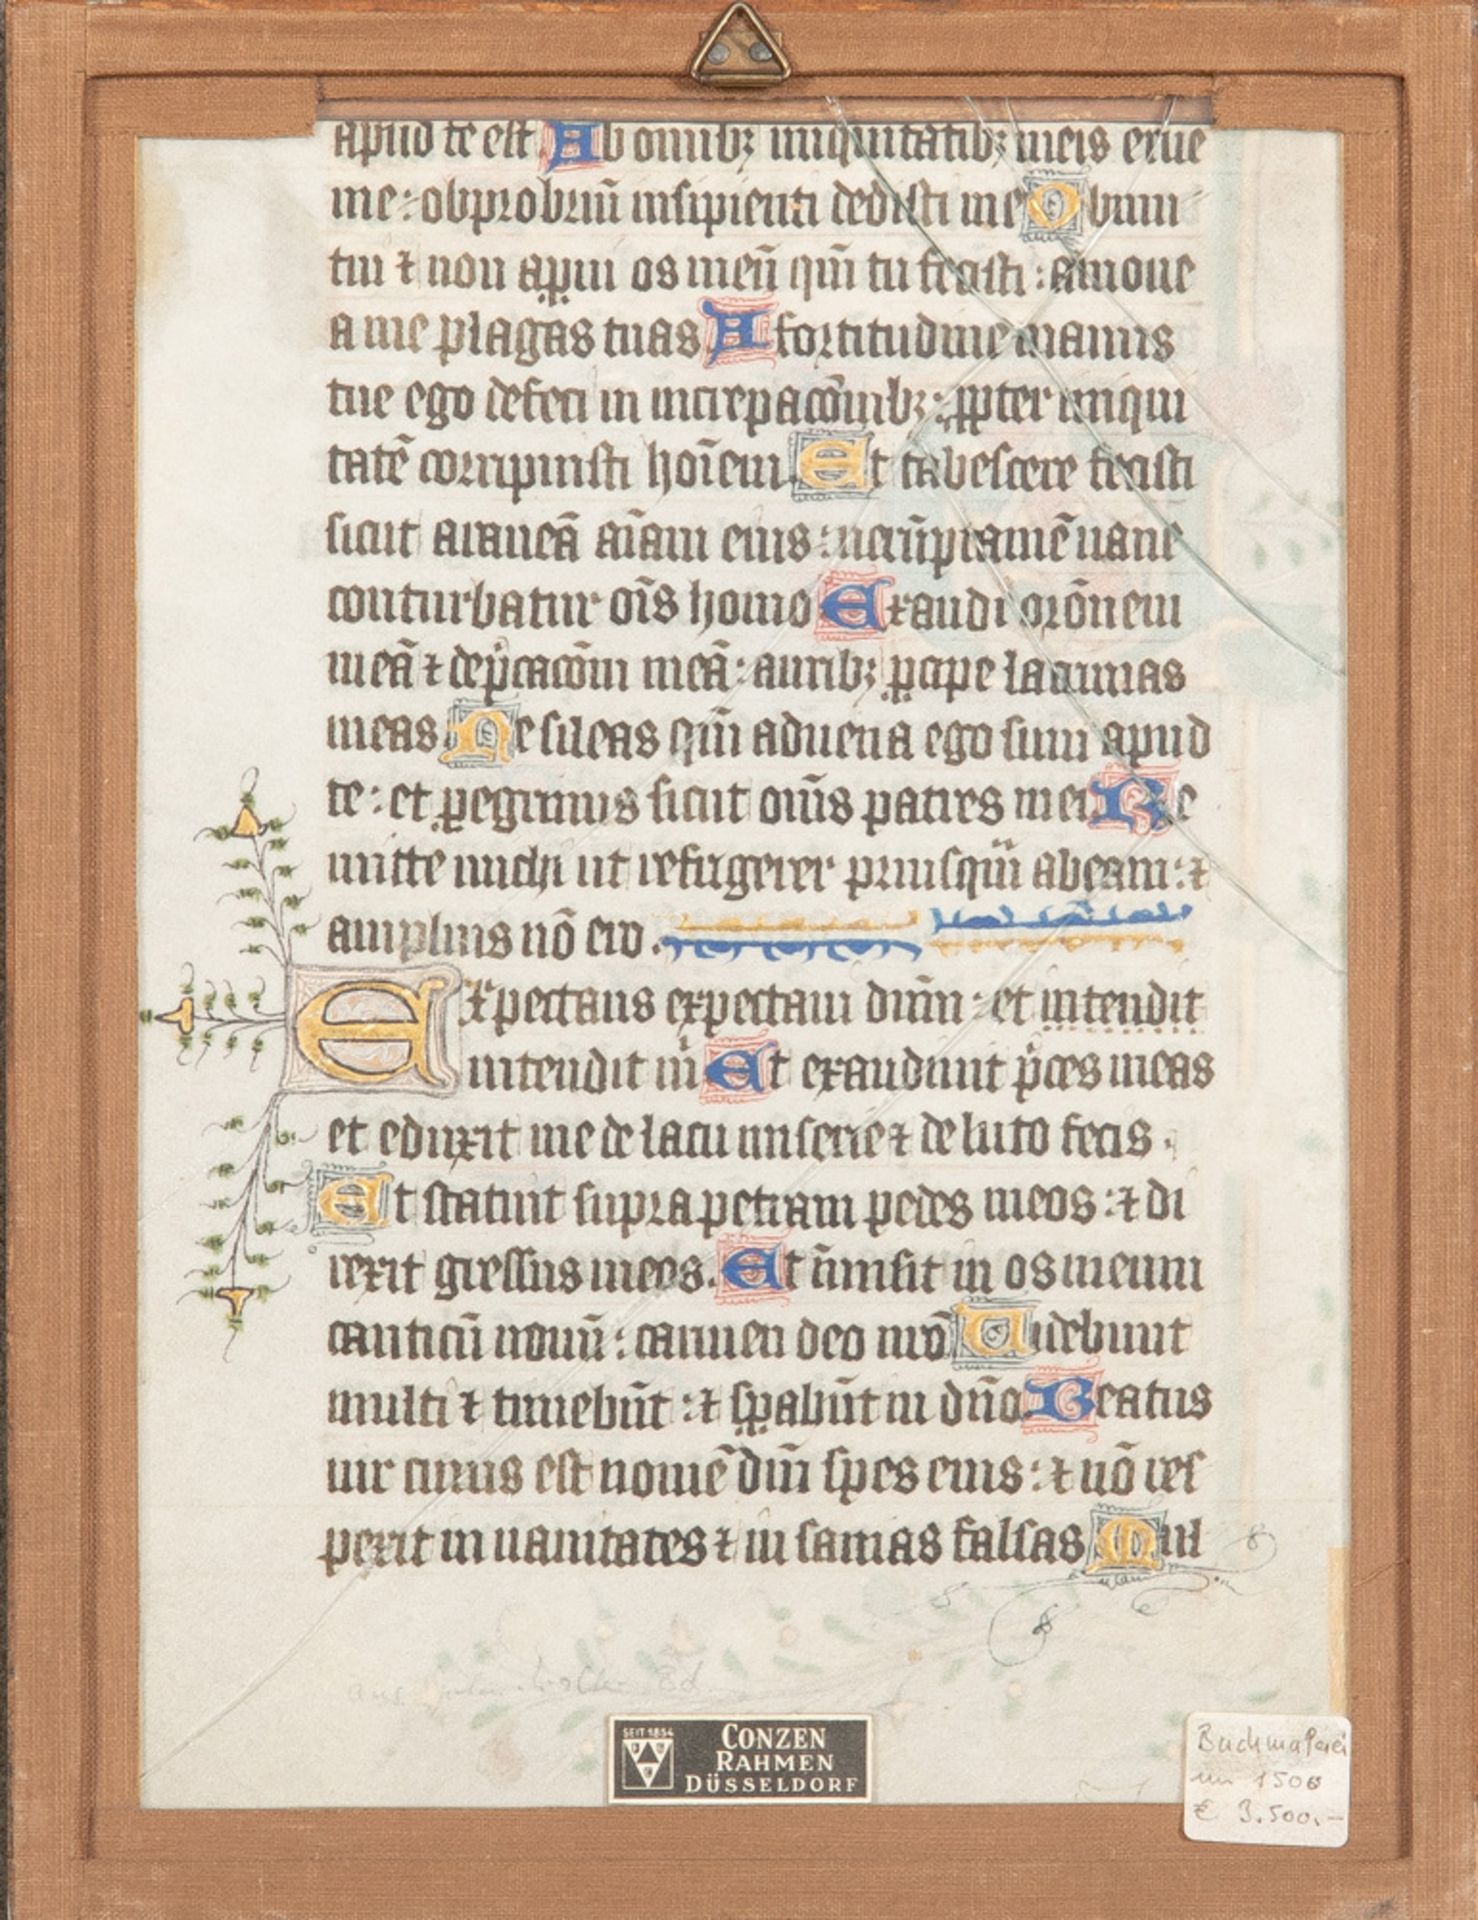 apud te est Ab om̄ib; iniquitatib; meis erue
me: obprobriū insipienti dedisti me Obmu
tui ⁊ non aꝑui os meū qm̄ tu fecisti: amoue
a me plagas tuas A fortitudine manus
tue ego defeci in increpacōnib;: ꝓpter iniqui
tatē corripuisti hoīem. Et tabescere fecisti
sicut araneā aīam eius: uerūptamē uane
conturbatur oīs homo Exaudi orōnem
meā ⁊ dep̄cacōm meā: aurib; ꝑcipe lacrimas
meas. Ne sileas qm̄ aduena ego sum apud
te: et ꝑegrinus sicut om̄s patres mei Re
mitte michi ut refrigerer priusqm̄ abeam: ⁊
amplius nō ero.
Expectans expectaui dūm: et intendit
intendit m̄ Et exaudiuit p̄ces meas
et eduxit me de lacu miserie ⁊ de luto fecis.
Et statuit supra petram pedes meos: ⁊ di
rexit gressus meos. Et īmisit in os meum
canticū nouū: carmen deo nrō Uidebunt
multi ⁊ timebūt: ⁊ sꝑabūt in dn̄o Beatus
uir cuius est nomē dn̄i spes eius: ⁊ nō res
pexit in uanitates ⁊ in sanias falsas Mul
aus
SEIT 1854
CONZEN
RAHMEN
DÜSSELDORF
Buchmalerei
um 1500
€ 3.500,-